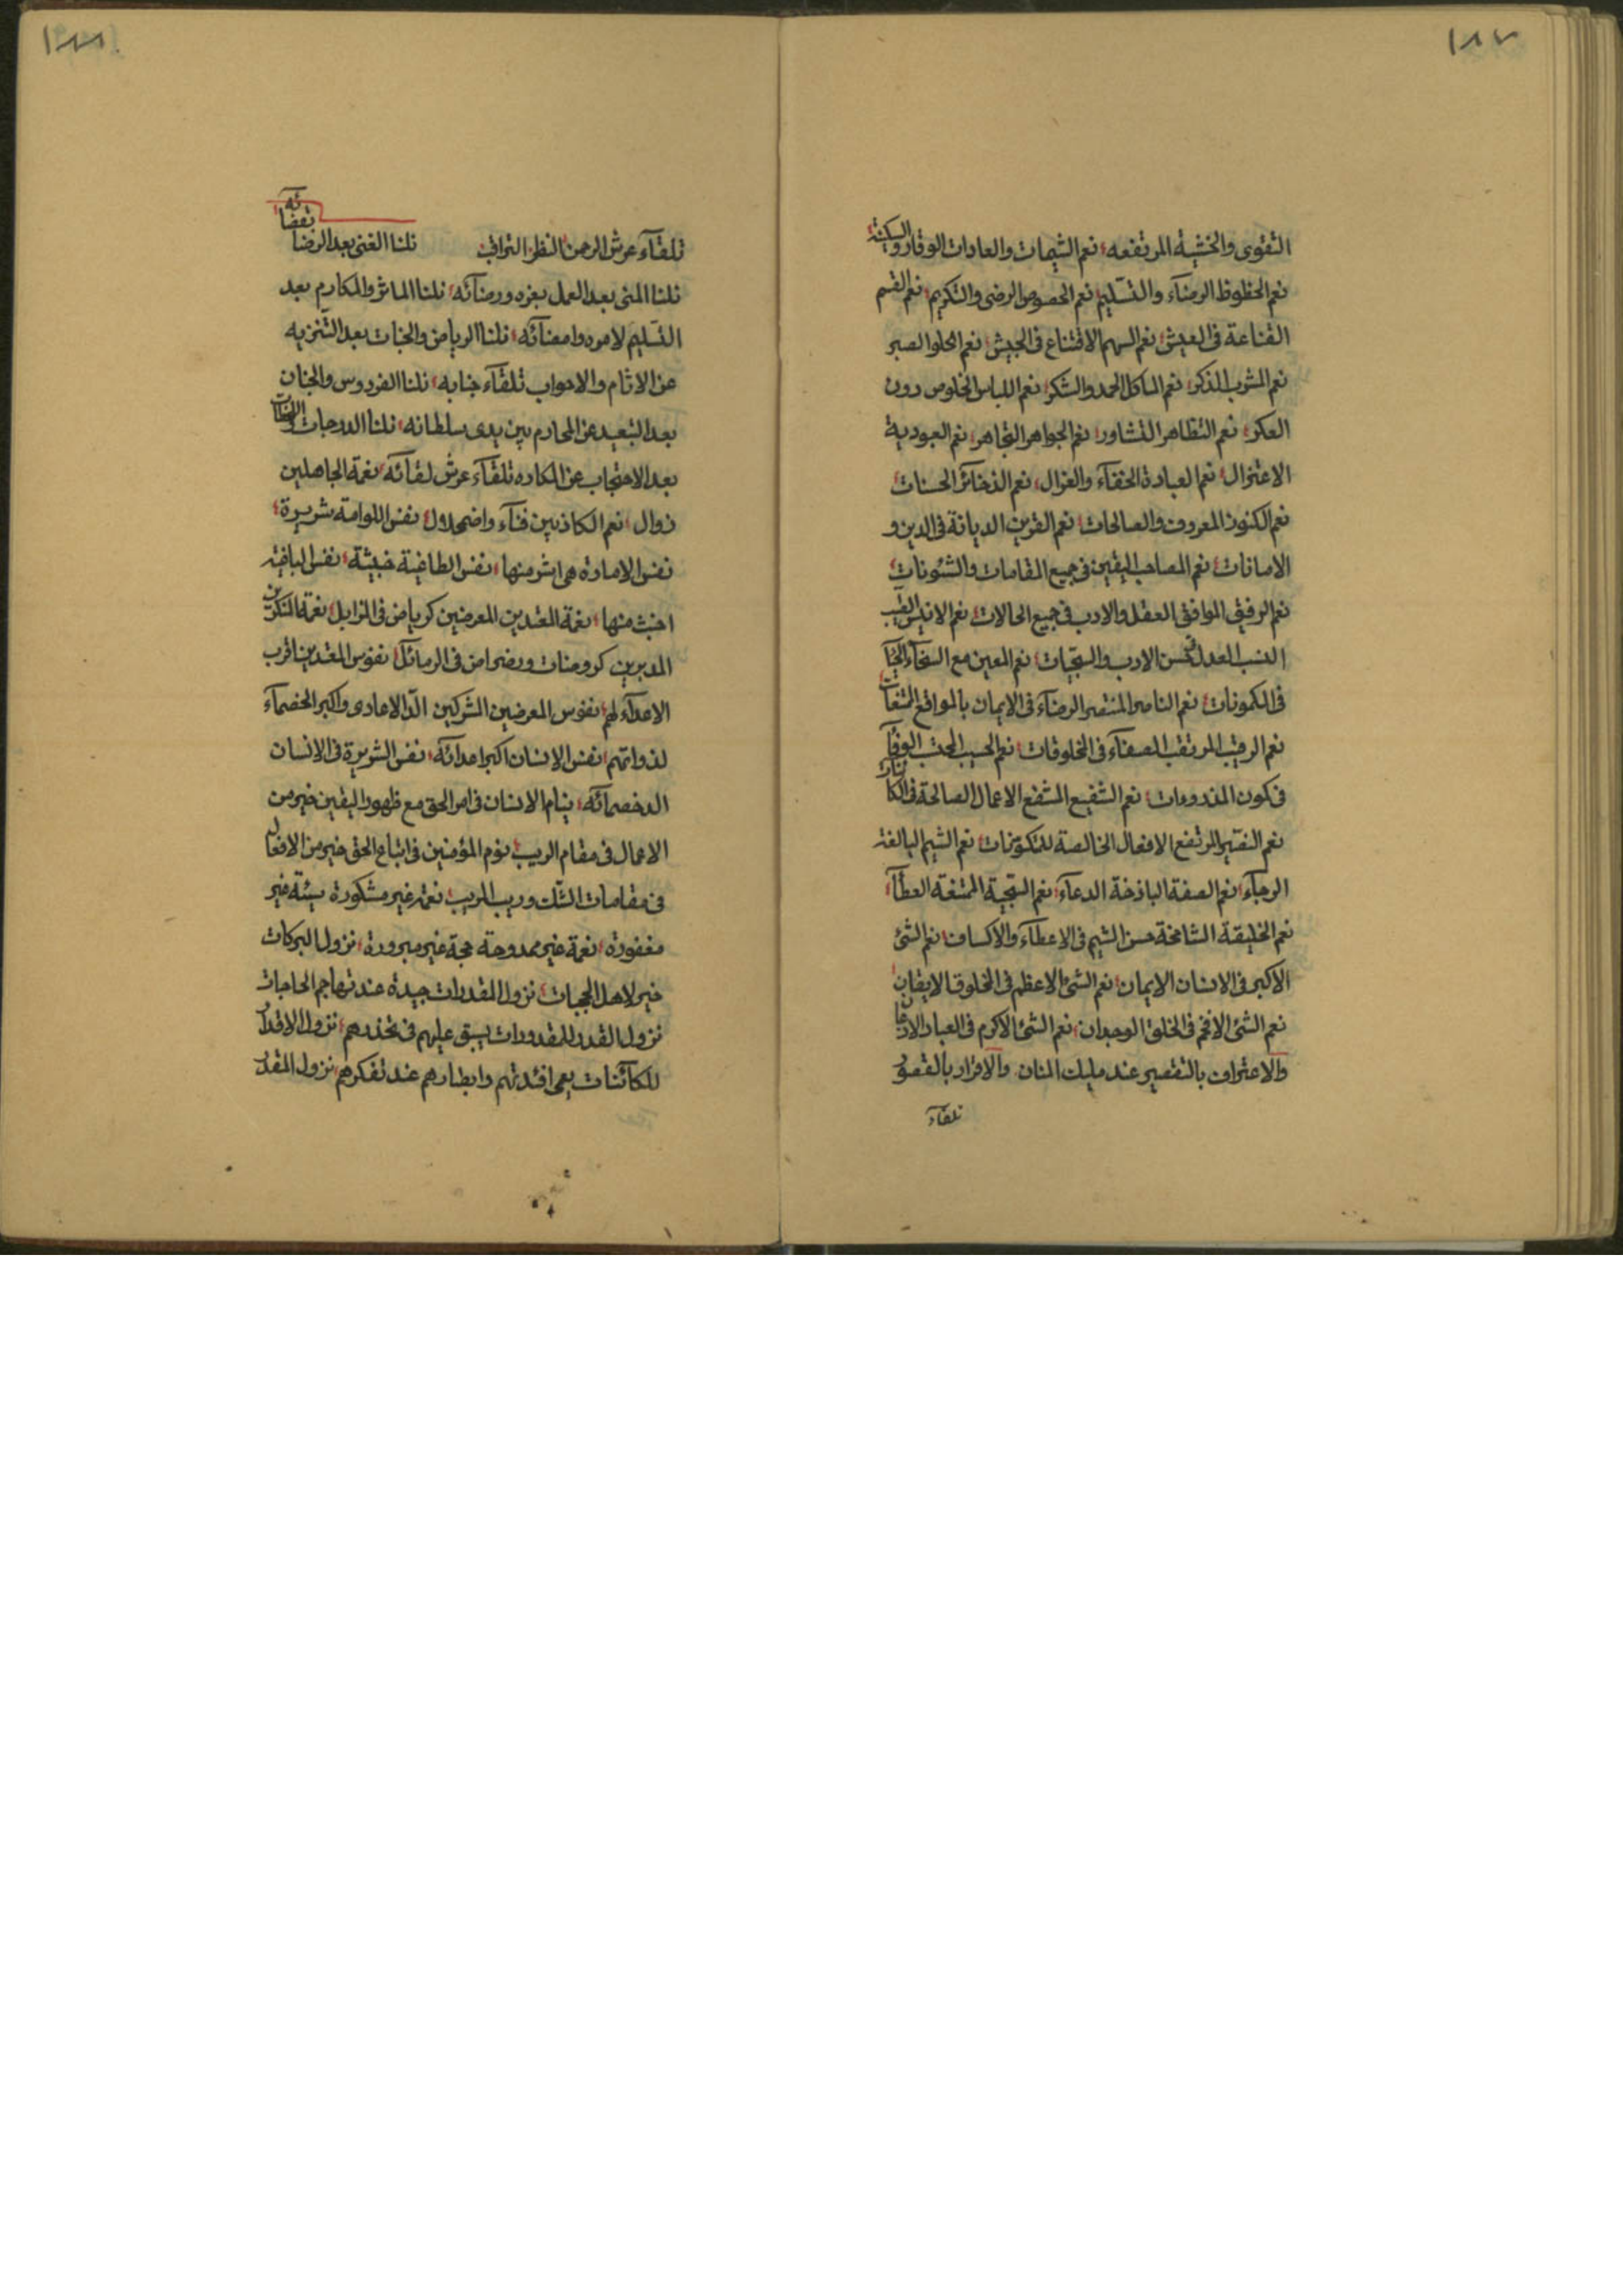 ١٨٧
التقوى والخشية المرتفعه نعم الشيمات والعادات الوقار والسكينة
نعم الحظوظ الرضآء والتسليم نعم الحصوص الرضى والتكريم نعم القسم
القناعة فى العيش نعم السهم الاقتناع فى الجيش نعم الحلو الصبر
نعم المشرب الذكر نعم الماكل الحمد والشكر نعم اللباس الخلوص دون
العكر نعم التظاهر التشاور نعم الجواهر التجاهر نعم العبودية
الاعتزال نعم العبادة الخفآء والغزال نعم الذخآئر الحسنات
نعم الكنوز المعروف والصالحات نعم القرين الديانة فى الدين و
الامانات نعم المصاحب اليقين فى جميع المقامات والشئونات
نعم الرفيق الموافق العقل والادب فى جميع الحالات نعم الانيس القيب
النسب العدل لحسن الادب والسجيات نعم المعين مع السخآء الحيآ
فى المكمونات نعم الناصر المنتصر الرضآء فى الايمان بالمواقع المتنعات
نعم الرقيب المرتقب الصفآء فى المخلوقات نعم الحسيب المحتسب الوفآ
فى كون المذروءات نعم الشفيع المشفع الاعمال الصالحة فى الكائنات
نعم النصير المرتفع الافعال الخالصة للمتكونات نعم الشيم البالغة
الرجآء نعم الصفة الباذخة الدعآء نعم السجية الممتنعة العطآء
نعم الخليقة الشامخة حسن الشيم فى الاعطآء والاكساف نعم الشئ
الاكبر فى الانسان الايمان نعم الشئ الاعظم فى المخلوق الايقان
نعم الشئ الافخم فى الخلق الوجدان نعم الشئ الاكرم فى العباد الاذعان
والاعتراف بالتقصير عند مليك المنان والاقرار بالقصور
تلقآء
١٨٨
تلقآء عرش الرحمن النظر التراقب نلنا الغنى بعد الرضا بقضائه
نلنا المنى بعد العمل بعزه ورضآئه نلنا الماثر والمكارم بعد
التسليم لامره وامضآئه نلنا الرياض والجنات بعد التنزيه
عن الاثام والاحواب تلقآء جنابه نلنا الفردوس والجنان
بعد التبعيد عن المحارم بين يدى سلطانه نلنا الدرجات
بعد الاحتجاب عن المكاره تلقآء عرش لقآئه نعمة الجاهلين
زوال نعم الكاذبين فنآء واضمحلال نفس اللوامة شريرة
نفس الامارة هى اشر منها نفس الطاغية خبيثة نفس الباغية
اخبث منها نعمة المعتدين المعرضين كرياض فى المزابل نعمة المنكرين
المدبرين كروضات وبضراض فى الرمآئل نفوس المعتدين اقرب
الاعدآء لهم نفوس المعرضين المشركين الد الاعادى واكبر الخصمآء
لذواتهم نفس الانسان اكبر اعدآئه نفس الشريرة فى الانسان
الد خصمآئه ينام الانسان فى امر الحق مع ظهور اليقين خير من
الاعمال فى مقام الريب نوم المؤمنين فى اتباع الحق خير من الافعال
فى مقامات الشك وريب المريب نعمة غير مشكورة سيئة غير
مغفورة نعمة غير ممدوحة حجة غير مبرورة نزول البركات
خير لاهل الحجبات نزول المقدرات جيدة عند تهاجم الحاجات
نزول القدر للمقدورات يسبق عليهم فى تحذرهم نزول الاقدار
للكآئنات يعمى افئدتهم وابصارهم عند تفكرهم نزول المقدر